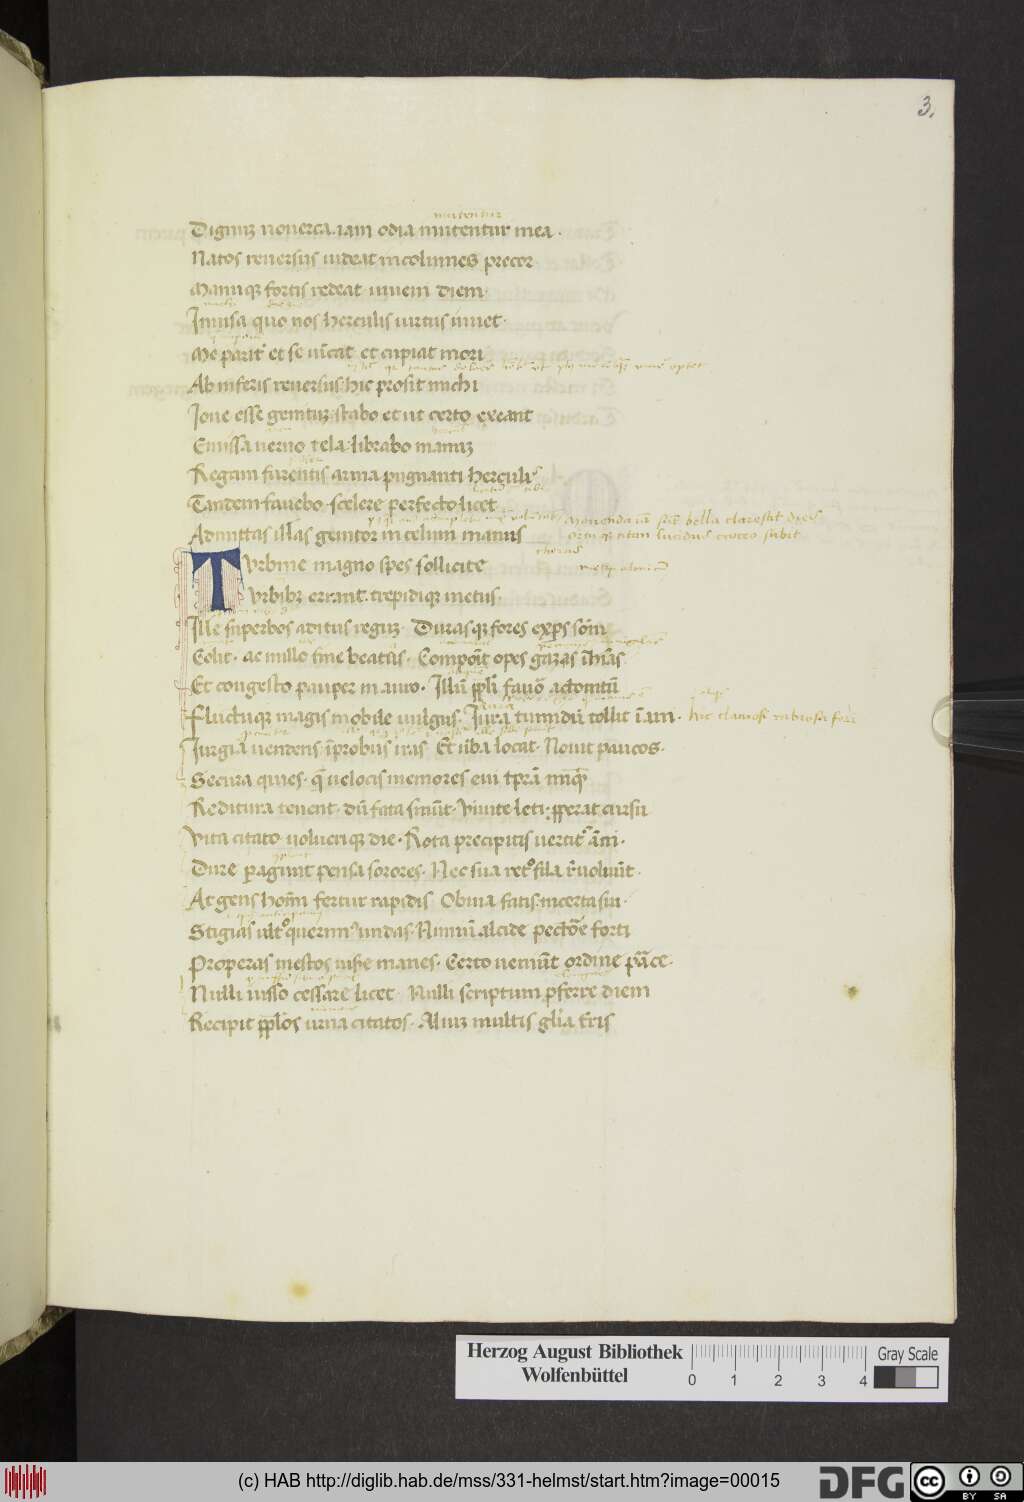 3.
mutentur
Dignuȝ nouerca. iam odia mutentur mea.
Natos reuersus uideat incolumes precor
Manuqȝ fortis redeat. inueni diem.
Inuisa quo nos herculis uirtus iuuet.
Me parit̃ et se uĩcat et cupiat mori
Ab inferis reuersus. hic prosit michi
Ioue esse genituȝ. stabo et ut certo exeant
Emissa neruo tela. librabo manuȝ
Regam furentis arma pugnanti herculi
Tandem fauebo. scelere perfecto licet
Admittas illas genitor in celum manus
mouenda iã sũt bella clarescit dies
ortuqȝ titan lucidus croceo subit
chorus
Turbine magno spes sollicite
Vrbibȝ errant. trepidiqȝ metus.
Ille superbos aditus reguȝ. Durasqȝ fores exp̃s som̃
Colit. ac nullo fine beatus. Compoĩt opes gazas ĩhiãs
Et congesto pauper in auro. Illũ pp̃li fauor̃ actonitũ
Fluctuqȝ magis mobile uulgus. Iura tumidũ tollit ĩani. hic clamosi rabiosa fori
Iurgia uendens ĩprobus iras Et ũba locat. Nouit paucos.
Secura quies. q̃ uelocis memores eui tp̃rã nũqȝ
Reditura tenent. dũ fata sinũt. Viuite leti. p̃perat cursu
Vita citato uolucriqȝ die. Rota precipitis uertit̃ ãni.
Dure peragunt pensa sorores. Nec sua ret⁰ fila r̃uoluũt.
At gens hoĩm fertur rapidis Obuia fatis. incerta sui.
Stigias ult⁰ querim᾿ undas. Nimiũ alcide pectõe forti
Properas mestos uis̃e manes. Certo ueniũt ordine pãce.
Nulli iusso cessare licet Nulli scriptum p̃ferre diem
Recipit pp̃los urna citatos. Aliuȝ multis gl̃ia t̃ris
Herzog August Bibliothek
Wolfenbüttel
0 1 2 3 4
Gray Scale
(c) HAB http://diglib.hab.de/mss/331-helmst/start.htm?image=00015
DFG
cc
BY SA